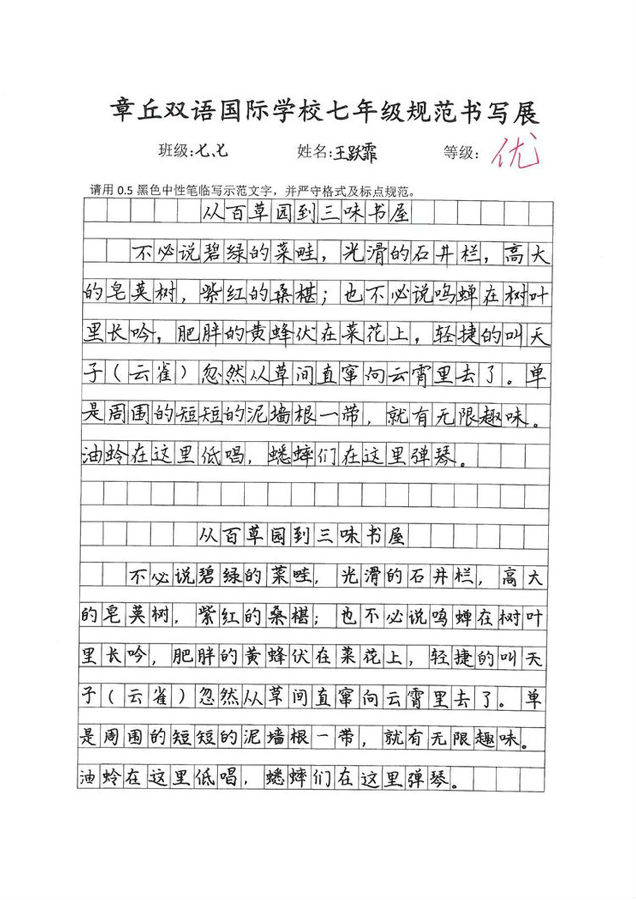 章丘双语国际学校七年级规范书写展
班级:七、七 姓名:王跃霏 等级: 优
请用 0.5 黑色中性笔临写示范文字，并严守格式及标点规范。
从百草园到三味书屋
不必说碧绿的菜畦，光滑的石井栏，高大
的皂荚树，紫红的桑椹；也不必说鸣蝉在树叶
里长吟，肥胖的黄蜂伏在菜花上，轻捷的叫天
子（云雀）忽然从草间直窜向云霄里去了。单
是周围的短短的泥墙根一带，就有无限趣味。
油蛉在这里低唱，蟋蟀们在这里弹琴。
从百草园到三味书屋
不必说碧绿的菜畦，光滑的石井栏，高大
的皂荚树，紫红的桑椹；也不必说鸣蝉在树叶
里长吟，肥胖的黄蜂伏在菜花上，轻捷的叫天
子（云雀）忽然从草间直窜向云霄里去了。单
是周围的短短的泥墙根一带，就有无限趣味。
油蛉在这里低唱，蟋蟀们在这里弹琴。